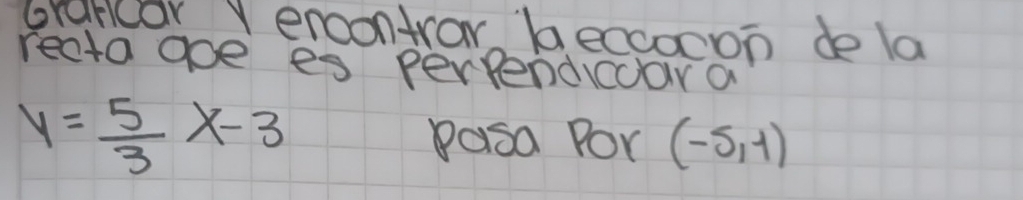 Graficar y encontrar la eccocion de la
recta qoe es perpendicolar a
y = 5/3 x - 3 pasa por (-5,1)